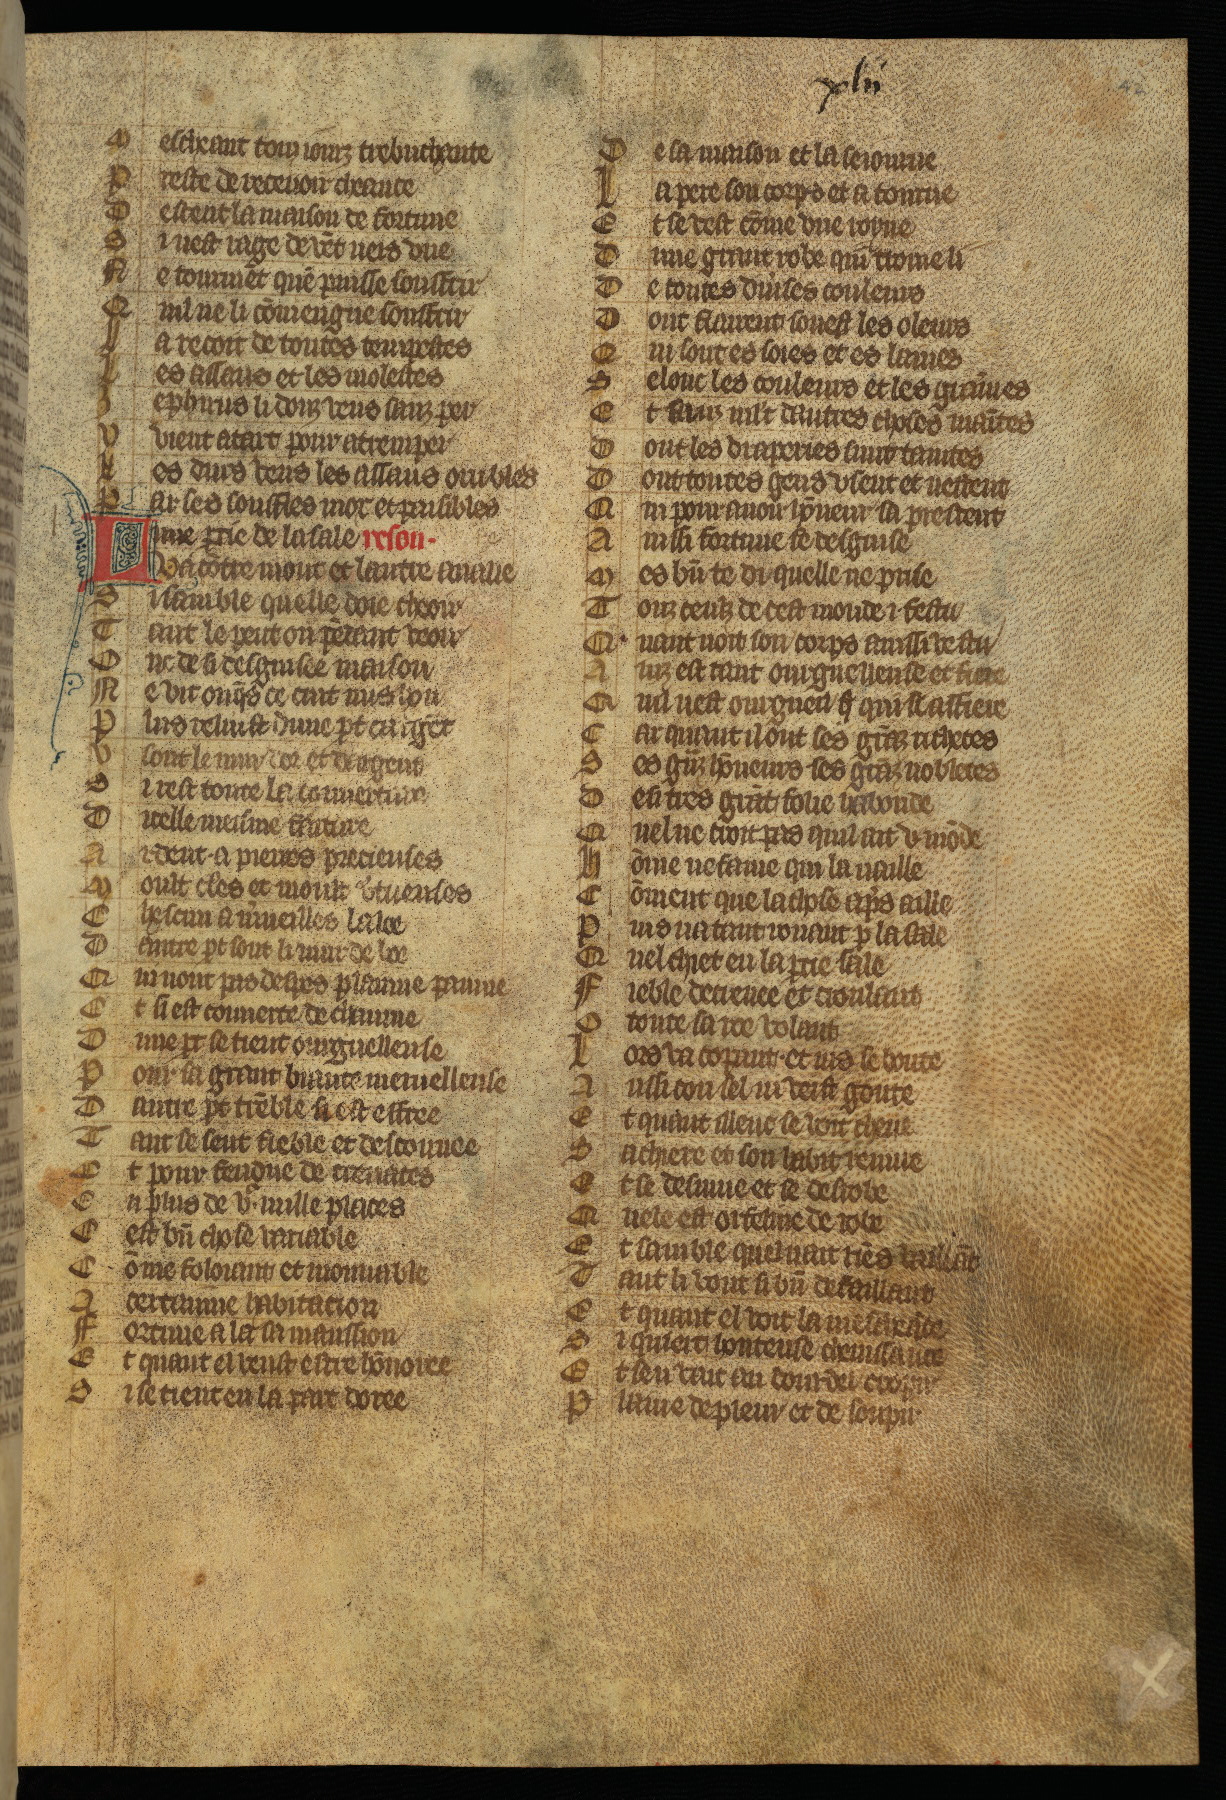 xlii
42
M escheant touz iourz trebuchante
P reste de receuoir cheance
D escent la maison de fortune
S i nest rage de vēt neis vne
N e tourmēt quē puisse souffrir
Q uil ne li cōuiengne souffrir
L a recoit de toutes tempestes
L es assaus et les molestes
Z ephirus li douz vens sanz per
V vient a tart pour atremper
L es durs vens les assaus orribles
P ar ses souffles et paisibles
L une ptie de la sale reson·
va cōtre mont et lautre aualle
S i samble quelle doie cheoir
T ant le peut on pēdant veoir
O nc de si desguisee maison
N e vit onq̄s ce cuit nus hon
P lus reluist dune pt car iget
V sont le mur dor et dargent
S i rest toute la couuerture
D icelle meisme faiture
A rdent·a pierres precieuses
M oult cleres et moult v̾tueuses
C hascun a m̾ueilles la loe
D autre pt sont li mur de boe
Q ui nont pas despes plainne paume
E t si est couuerte de chaume
D une pt se tient orguelleuse
P our sa grant biaute merueilleuse
D autre pt trēble si est effree
T ant se sent fieble et descouuree
E t pour fendue de creuaces
E n plus de v·mille places
E est bn̄ chose variable
C ōme foloiant et mouuable
A certainne habitacion
F ortune a la sa mansion
E t quant el veust estre hōnoree
S i se tient en la part doree
D e la maison et la seiourne
L a pere son corps et a tourne
E t se vest cōme vne royne
D une grant robe qui traine li
D e toutes diuises couleurs
D ont flairent souef les oleurs
Q ui sont es soies et es laines
S elonc les couleurs et les grainnes
E t sanz mlt dautres choses maītes
D ont les draperies sunt taintes
D ont toutes gens vsent et uestent
Q ui pour auoir hōneur sa prestent
A inssi fortune se desguise
M es bn̄ te di quelle ne prise
T ouz ceulz de cest monde i festu
Q uant uoit son corps ainssi vestu
A inz est tant ourguelleuse et fiere
Q uil nest ourgueil q̄ qui sa affiere
C ar quant il ont ses grās richeces
S es grāz hōneurs ses grāz nobleces
D e si tres grāt folie habonde
Q uel ne croit pas quil ait v mōde
H ōme ne fame qui la uaille
C ōment que la chose ap̄s aille
P uis ua tant rouant p̄ la sale
Q uel chiet en la ptie sale
F ieble decreuee et croullant
O toute sa roe volant
L ors va copant·et ius se boute
A ussi con sel ni veist goute
E t quant illenc se voit cheue
S a chiere et son habit remue
E t se desnue et se desrobe
Q uele est orfeline de robe
E t samble quel nait riēs vaillāt
T ant li vont si bn̄ defaillant
E t quant el voit la mescheāce
S i quiert honteuse cheuissance
E t sen vait au bourdel cropir
P lainne de pleur et de soupir